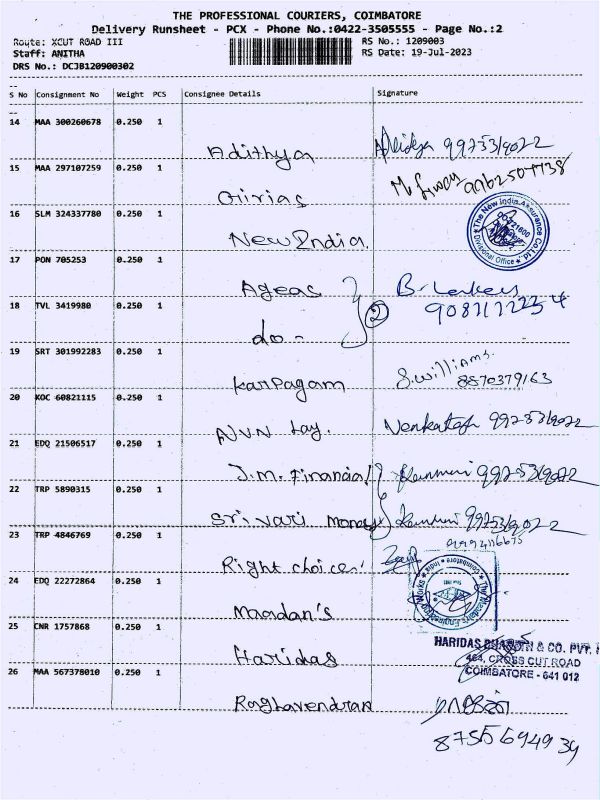 THE PROFESSIONAL COURIERS, COIMBATORE
Delivery Runsheet - PCX - Phone No.:0422-3505555 - Page No.:2
Route: XCUT ROAD III RS No.: 1209003
Staff: ANITHA RS Date: 19-Jul-2023
DRS No.: DCJB120900302
S No Consignment No Weight PCS Consignee Details Signature
14 MAA 300260678 0.250 1
Adithya
15 MAA 297107259 0.250 1
Girias
16 SLM 324337780 0.250 1
New India.
The New India Assurance Co. Ltd.
Divisional Office
17 PON 705253 0.250 1
Ageas
18 TVL 3419980 0.250 1
do - 2
19 SRT 301992283 0.250 1
Karpagam S. Williams.
8870379163
20 KOC 60821115 0.250 1
Venkatesh
21 EDQ 21506517 0.250 1
J.M. Financial
22 TRP 5890315 0.250 1
Sri Vari Money
23 TRP 4846769 0.250 1
Right choice
24 EDQ 22272864 0.250 1
Maadan's
Coimbatore India
25 CNR 1757868 0.250 1
Haridas
HARIDAS & CO. PVT.
464, CROSS CUT ROAD
COIMBATORE - 641 012
26 MAA 567378010 0.250 1
Raghavendran